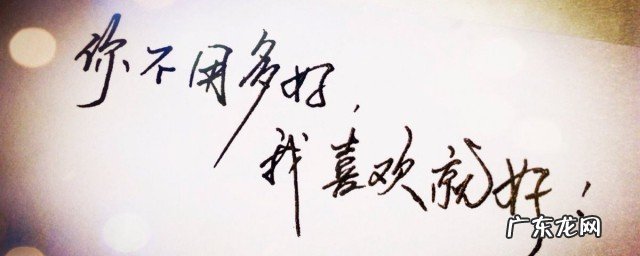 你不用多好，
我喜欢就好！
广东龙网